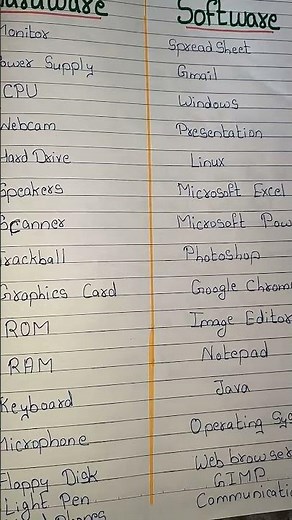 Hardware Software
Monitor Spread Sheet
Power Supply Gmail
CPU Windows
Webcam Presentation
Hard Drive Linux
Speakers Microsoft Excel
Scanner Microsoft Pow
Trackball Photoshop
Graphics Card Google Chrom
ROM Image Editor
RAM Notepad
Keyboard Java
Microphone Operating Sys
Floppy Disk Web browser
Light Pen GIMP
Communicati